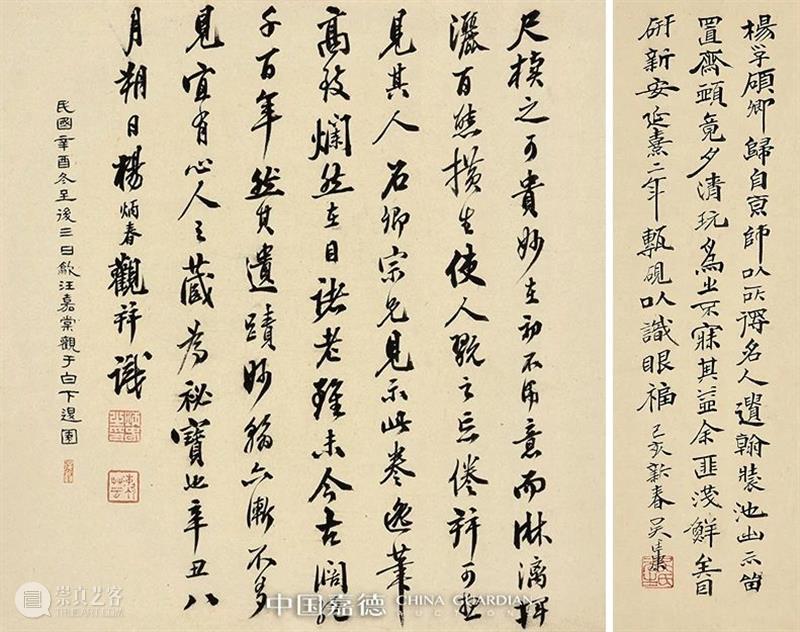 楊孚碩卿歸自京師以所得名人遺翰裝池出示留
置齋頭竟夕清玩為之不寐其益余匪淺鮮矣目
研新安延熹二年甎硯以識眼福 己亥新春吴
尺牘之可貴妙在初不用意而淋漓揮
灑百態橫生使人翫之忘倦并可想
見其人石卿宗兄見示此卷逸筆
高致爛然在目諸老雖未今古闊絕
千百年然其遺蹟妙翰亦漸不多
見宜有心人之藏為秘寶也辛丑八
月朔日楊炳春觀並識
民國辛酉冬至後三日歙汪嘉棠觀于白下邊園
崇真艺客
中国嘉德 CHINA GUARDIAN